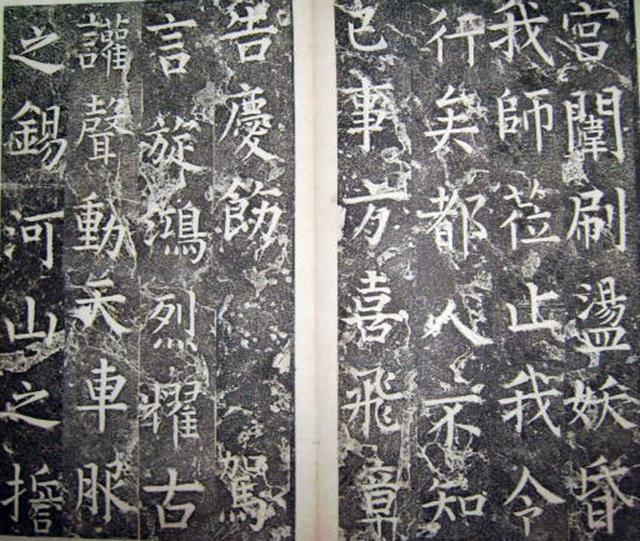 宮闈刷盪妖昬
我師莅止我令
行矣都人不知
已事方喜飛章
告慶飭駕
言旋鴻烈燿古
讙聲動天車服
之錫河山之誓